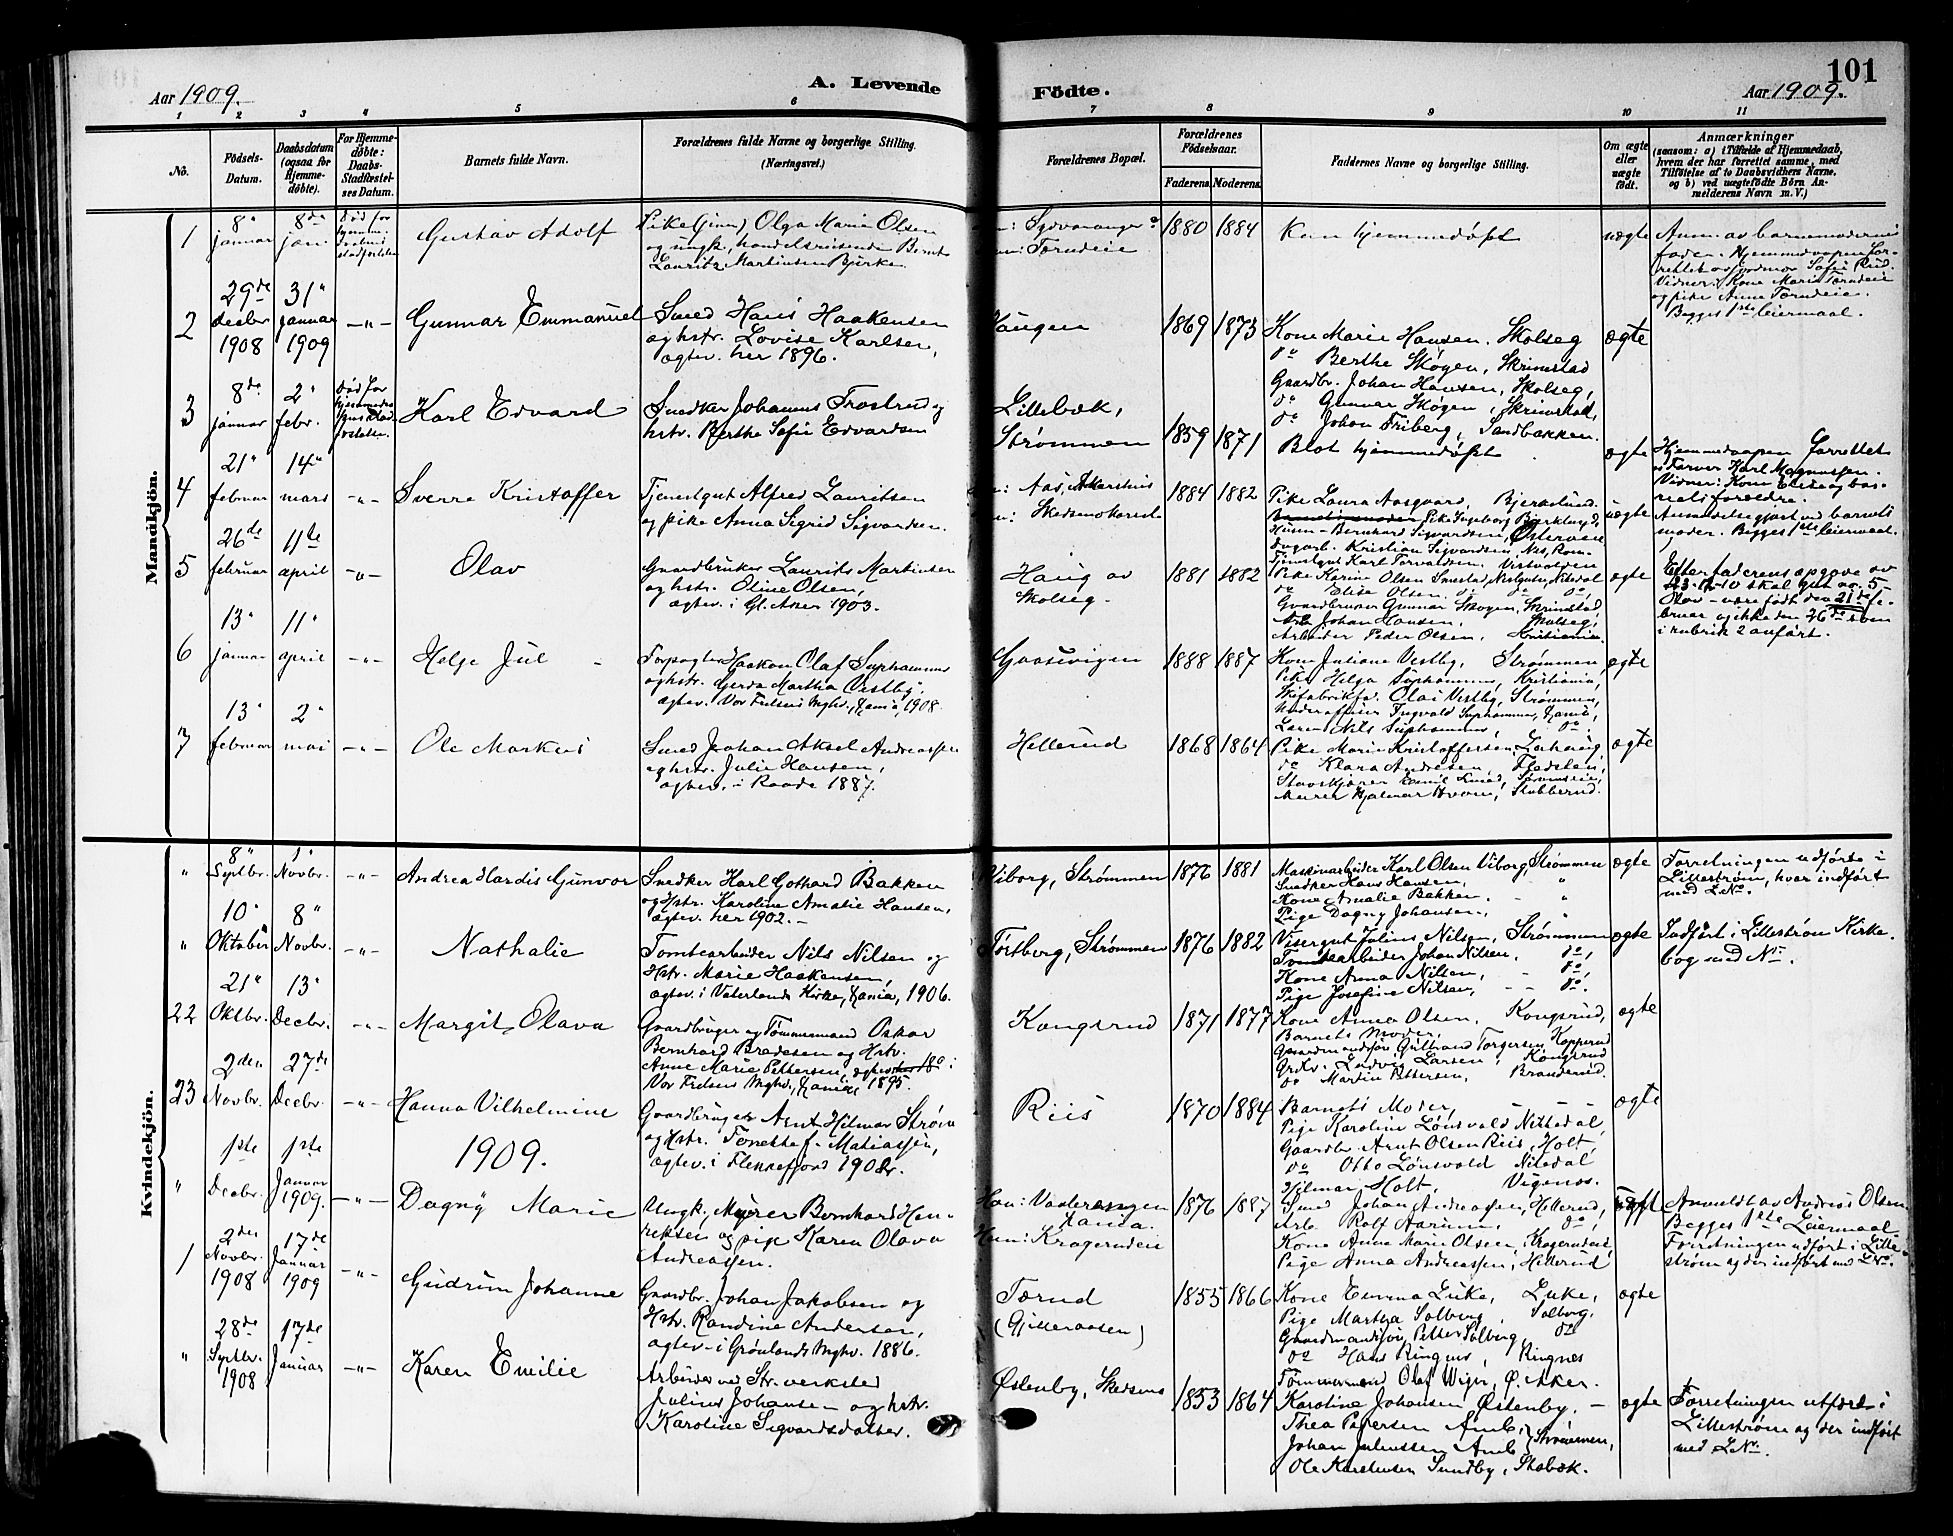 101
Aar 1909.
A. Levende
Födte.
Aar 1909.
1 2 3 4 5 6 7 8 9 10 11
No.
Födsels-
Datum.
Daabsdatum
(ogsaa for
Hjemme-
döbte).
For Hjemme-
döbte:
Daabs-
Stadfæstel-
ses Datum.
Barnets fulde Navn.
Forældrenes fulde Navne og borgerlige Stilling.
(Næringsvei.)
Forældrenes Bopæl.
Forældrenes
Födselsaar.
Faderens. Moderens.
Faddernes Navne og borgerlige Stilling.
Om ægte
eller
uægte
født.
Anmærkninger
(saasom: a) i Tilfælde af Hjemmedaab,
hvem der har forrettet samme, med
Tilföielse af to Daabsvidners Navne,
og b) ved uægtefödte Börn An-
melderens Navn m. V.)
Mandkjön.
1
8"
januar
8de
jan.
Gustav Adolf
Pike Olga Marie Olsen
og ungk. handelsreisende Bernt
Lauritz Martinsen Bjerke
1880 1884
Kun hjemmedøpt
uægte
Anm. av barnemoderens
fader. Hjemmedaapen for-
rettet av jordmor Sofie
Vidner: Kone Marie
og pike Anna
Begges 1ste leiermaal.
2
29de
Decbr
1908
31"
Januar
1909
-"-
Gunnar Emmanuel
Smed Hans Haakensen
og hstr. Lovise Karlsen,
ægtev. her 1896.
Haugen
1869 1873
Kone Marie Hansen. Skolseg
do Berthe Skøgen, Skrimstad
Gaardbr. Johan Hansen, Skolseg,
do Gunnar Skøgen, Skrimstad,
do Johan Friberg, Sandbakken.
ægte
3
8de
januar
2"
febr.
Død før
Karl Edvard
Snedker Johannes Trostrud og
hstr. Berthe Sofie Edvardsen
Lillebæk,
Strømmen
1859 1871
Blot hjemmedøpt
ægte
Hjemmedaapen forrettet
Karl Magnussen.
Vidner: Kone
forældre.
4
21"
februar
14"
mars
-"-
Sverre Kristoffer
Tjenestgut Alfred Lauritsen
og pike Anna Sigrid Sigvardsen.
Aas, Akershus
Skedsmokorset
1884 1882
Pike Laura Aasgaard, Bjerkelund.
Pike Ingeborg Bjerklund,
Bernhard Sigvardsen,
Kristian Sigvardsen,
Tjenestgut Karl Torvaldsen,
uægte
Anmeldelse gjort ved barnets
moder. Begges 1ste leiermaal.
5
26de
februar
11te
april
-"-
Olav
Gaardbruker Laurits Martinsen
og hstr. Oline Olsen,
ægtev. i Gl. Aker 1903.
Haug av
Skolseg.
1881 1882
Pike Karine Olsen Nitedal
do Elise Olsen. do do,
Gaardbruker Gunnar Skøgen, Skrimstad
Johan Hansen, Skolseg,
Arbeider Peder Olsen, Kristiania.
ægte
Efter faderens opgave av
skal gut nr. 5
Olav - være født den 21de fe-
bruar og ikke den 26de som
i rubrik 2 anført.
6
13"
januar
11"
april
-"-
Helge Jul
Forpagter Haakon Olaf Suphammer
og hstr. Gerda Martha Vestby.
ægtev. Vor Frelsers Mghv., Kania, 1908.
Gaasevigen
1888 1887
Kone Juliane Vestby, Strømmen,
Pike Helga Suphammer, Kristiania,
Skifabrikfd. Olai Vestby, Strømmen,
Underofficer Ingvald Suphammer, Kania,
Nils Suphammer, do.
ægte
7
13"
februar
2"
mai
-"-
Ole Markus
Smed Johan Aksel Andreassen
og hstr. Julie Hansen,
ægtev. i Raade 1887.
Hellerud
1868 1864
Pike Marie Kristoffersen,
do Klara Andresen,
Hjalmar
ægte
Kvindekjön.
"
8"
Septbr.
1"
Novbr.
-"-
Andrea Hardis Gunvor
Snedker Karl Gothard Bakken
og Hstr. Karoline Amalie Hansen,
ægtev. her 1902. -
Viborg, Strømmen
1876 1881
Maskinarbeider Karl Olsen Viborg, Strømmen
Snedker Hans Hansen, "
Kone Amalie Bakken. - "
Pige Dagny Johansen, "
ægte
Forretningen udførte i
Lillestrøm, hvor indført
med L No.
"
10"
Oktober
8"
Novbr.
-"-
Nathalie
Tomtearbeider Nils Nilsen og
Hstr. Marie Haakensen,
ægtev. i Vaterlands Kirke, Kania, 1906.
Tostborg, Strømmen
1876 1882
Visergut Julius Nilsen, Strømmen
Tomtearbeider Johan Nilsen, do,
Kone Anna Nilsen, - do,
Pige Josefine Nilsen, - - do.
ægte
Indført i Lillestrøm Kirke-
bog med No.
22
21"
Oktbr.
13"
Decbr.
-"-
Margit Olava
Gaardbruger og Tømmermand Oskar
Bernhard Bredesen og Hstr.
Anne Marie Pettersen, ægtev. i
Vor Frelsers Mghv., Kania 1895.
Kongsrud
1871 1877
Kone Anna Olsen, Kongsrud,
Barnets Moder,
Gaardmandsfør. Gulbrand Torgersen, Kopperud
Grdbr. Ludvig Larsen, Kongsrud
do Martin Pettersen, Branderud.
ægte
23
2den
Novbr.
27de
Decbr.
-"-
Hanna Vilhelmine
Gaardbruger Arnt Hilmar Strøm
og Hstr. Tonette f. Matiassen,
ægtev. i Flekkefjord 1908.
Riis
1870 1884
Barnets Moder, - -
Pige Karoline Lønsvald Nittedal,
Gaardbr. Arnt Olsen Riis, Holt,
do Otto Lønsvald Nitedal
Hilmar Holt, Vigenes.
ægte
1909.
"
1ste
Decbr.
1ste
Januar
1909.
-"-
Dagny Marie
Ungk., Murer Bernhard Hen-
riksen og pige Karen Olava
Andreassen.
Han: Vaalerengen
Kania.
Hun: Kragerudeie
1876 1887
Smed Johan Andreassen, Hellerud,
Arb. Rolf Aarum, do,
Kone Anne Marie Olsen, Kragerudeie,
Pige Anna Andreassen, Hellerud
uægte
Anmeldt av Andreas Olsen
Begges 1ste Leiermaal
Forretningen udført i Lille-
strøm og der indført med L No.
1
2den
Novbr.
1908
17de
Januar
1909
-"-
Gudrun Johanne
Gaardbr. Johan Jakobsen og
Hstr. Randine Andersen,
ægtev. i Grønlands Mghv. 1886.
Tærud
(Gjelleraasen)
1855 1866
Kone Emma Luke, Luke,
Pige Martha Solberg, Solberg.
Gaardmandsfør. Petter Solberg, do
do Hans Ringnes, Ringnes
Tømmermand Olaf Wiger, Ø. Aker.
ægte
"
28de
Septbr.
1908
17de
Januar
-"-
Karen Emilie
Arbeider ved Str. verksted
Julius Johansen og hstr.
Karoline Sigvardsdatter.
Østenby, Skedsmo
1853 1864
Karoline Johansen Østenby. -
Thea Pedersen Amb,
Johan Juliussen Amb } Strømmen,
Ole Karelius Sundby, Stabæk.
ægte
Forretningen utført i
Lillestrøm og der indført
med L No.